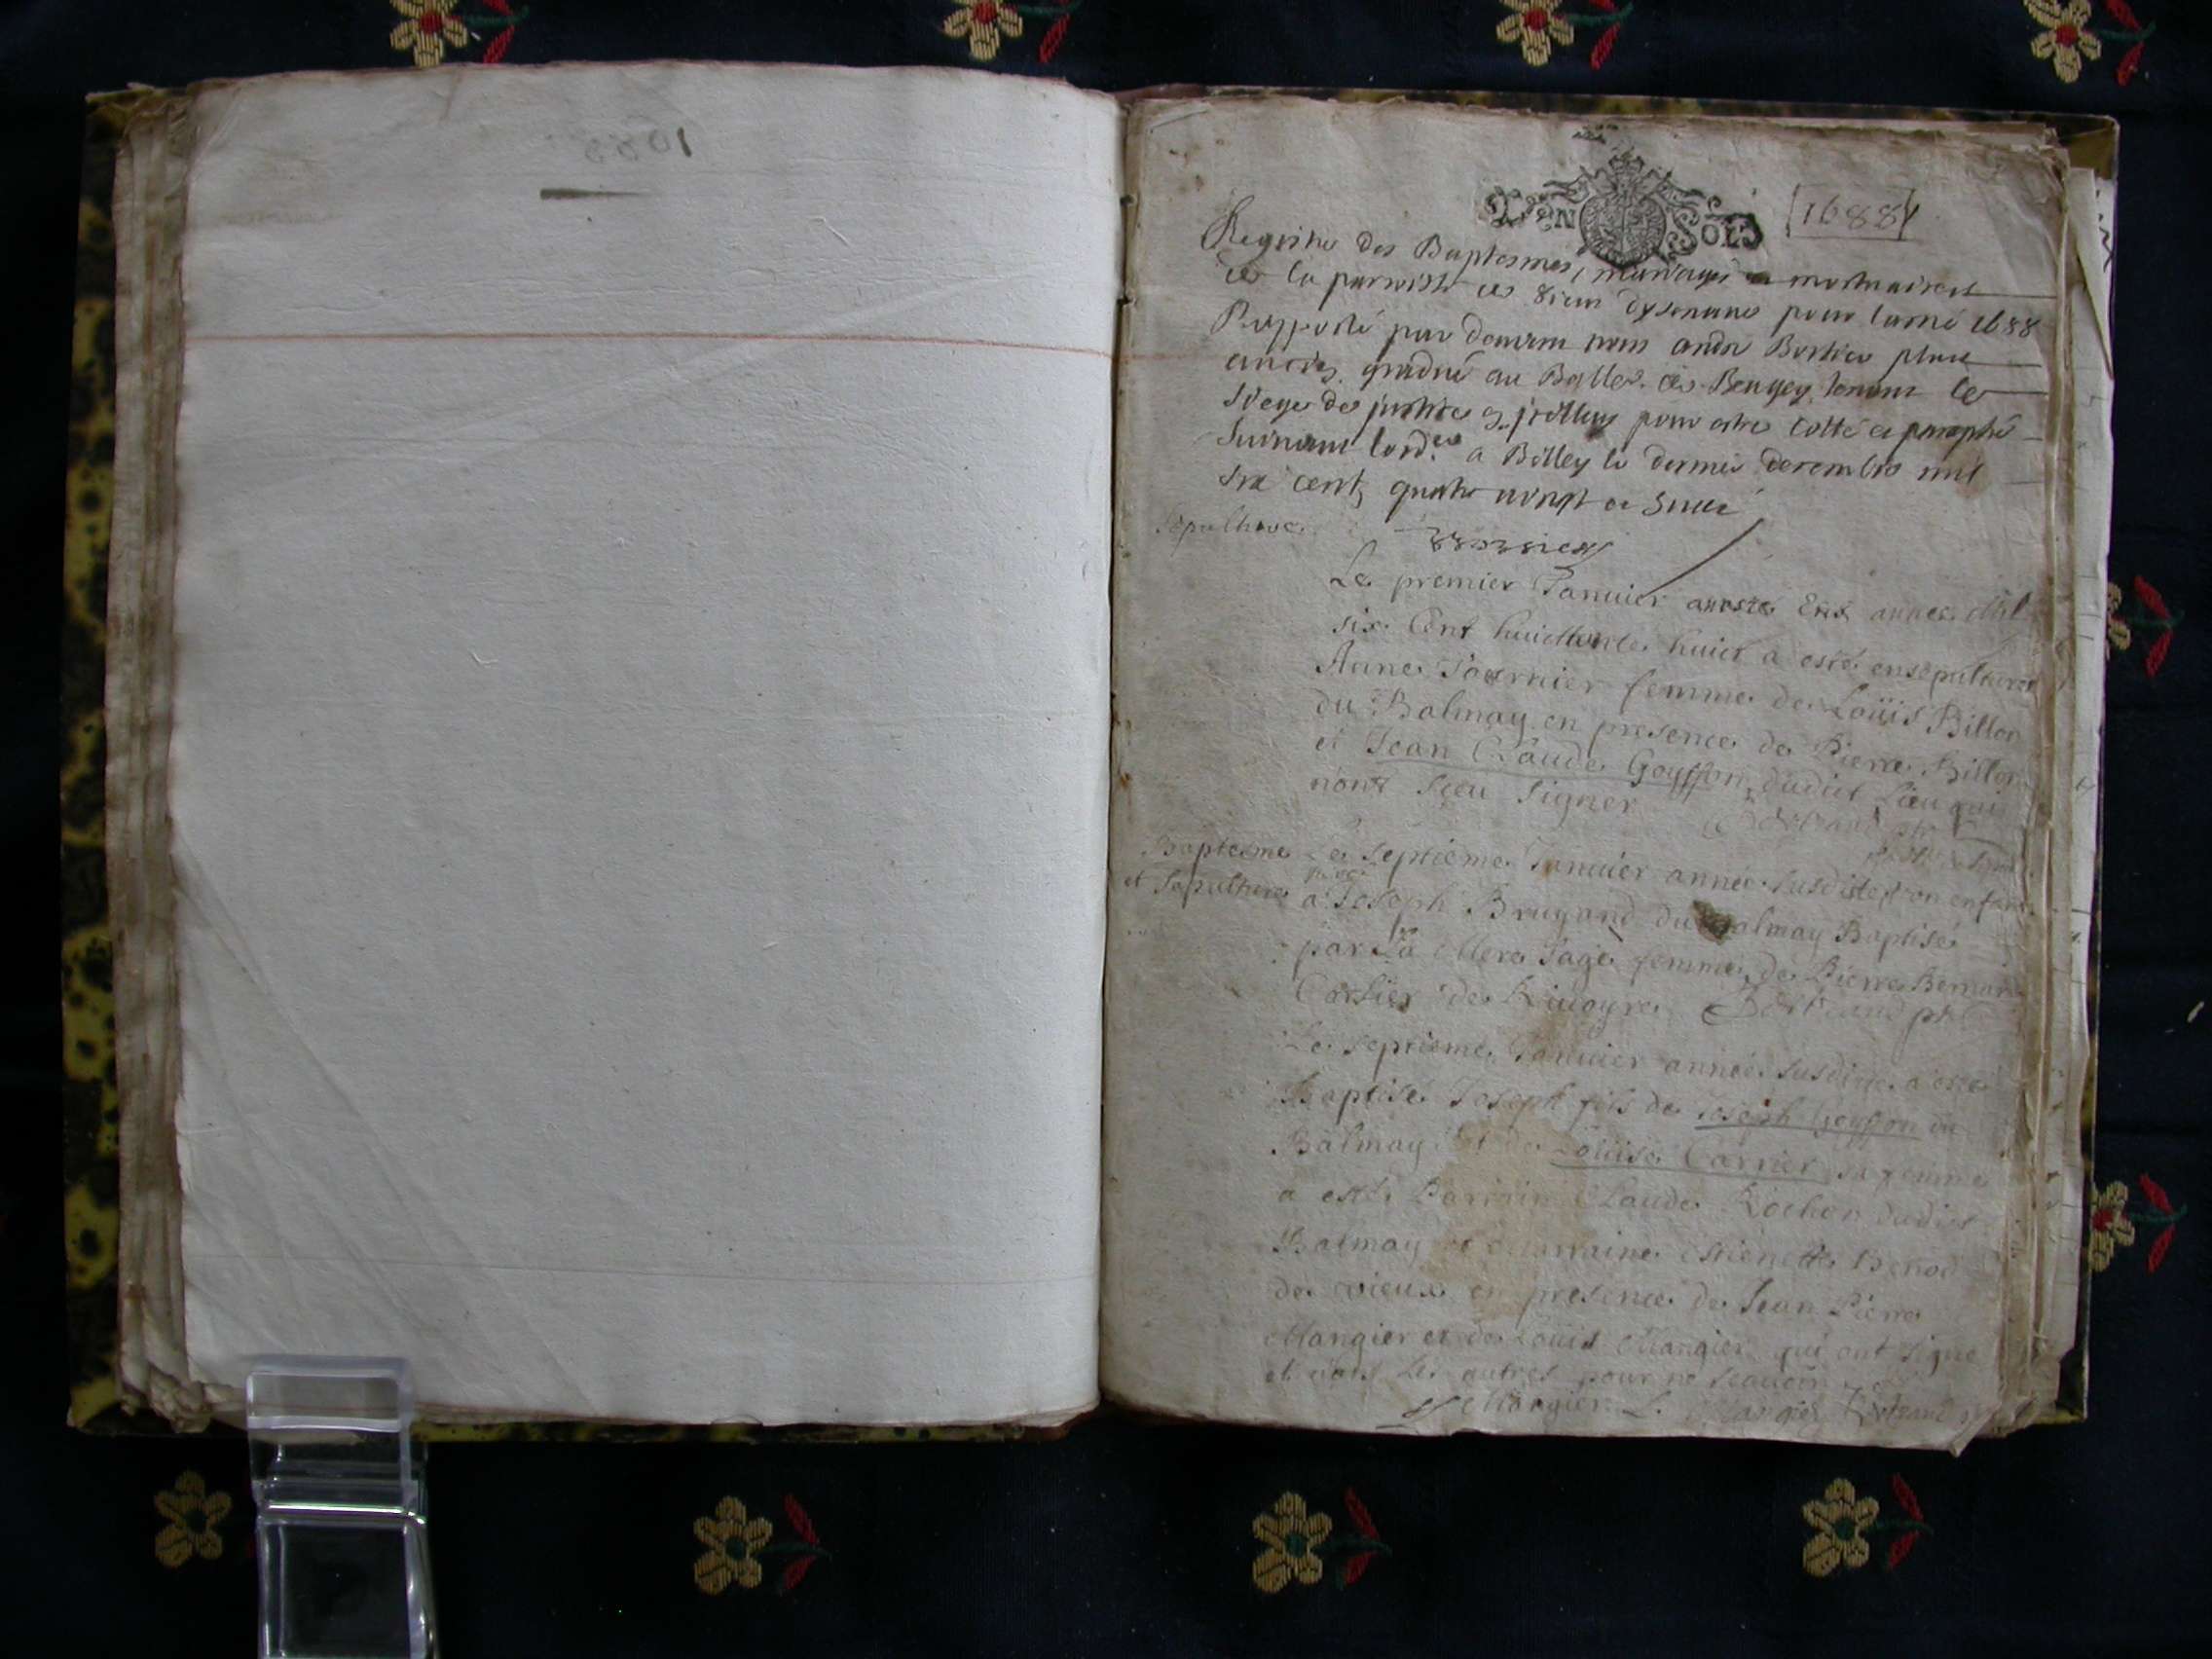 1688
Registre des Baptesmes, mariages et mortuaires
de la parroisse de Vieu dysenave pour lanné 1688
Rapporté par devant nous
gradué au Balliage de Beugey tenant le
siege de justice pour estre cotté et paraphé
suivant lord.ce a Belley le dernier decembre mil
six cents quatre vingt et
Sepulture
Le premier Januier année Mil
six Cent huictante huict a esté ensepulturée
Anne fournier femme de Loüis Billon
du Balmay en presence de Pierre Billon
et Jean Claude Goyffon dudict Lieu qui
nont sceu signer
Baptesme Le septieme Januier année susditte un enfant
et Sepulture a Joseph Brugand du Balmay Baptisé
par la Mere sage femme de Pierre Bernard
de Rivoyre
Le septieme Januier année susditte a esté
Baptisé Joseph fils de Joseph Goyffon du
Balmay et de Loüise Carrier sa femme
a esté Parrain Claude Rochon dudict
Balmay et Marraine Estienette
de vieux en presence de Jean Pierre
Mangier et de Loüis Mangier qui ont signé
et non les autres pour ne scauoir
Mangier L. Mangier